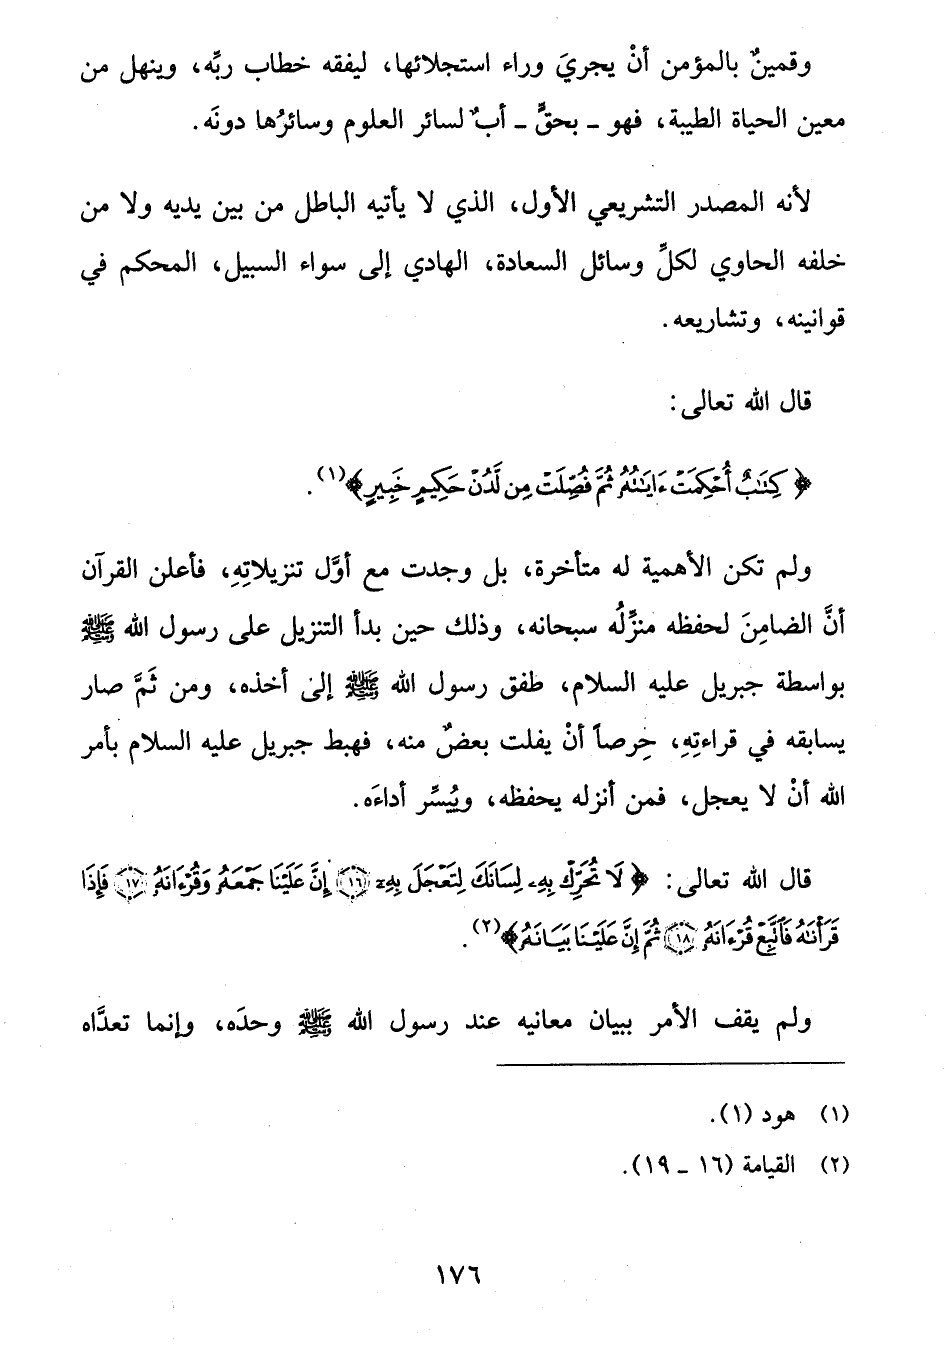 وقمينٌ بالمؤمن أنْ يجريَ وراء استجلائها، ليفقه خطاب ربِّه، وينهل من
معين الحياة الطيبة، فهو ـ بحقٍّ ـ أبٌ لسائر العلوم وسائرُها دونَه.
لأنه المصدر التشريعي الأول، الذي لا يأتيه الباطل من بين يديه ولا من
خلفه الحاوي لكلِّ وسائل السعادة، الهادي إلى سواء السبيل، المحكم في
قوانينه، وتشاريعه.
قال الله تعالى:
﴿كِتَٰبٌ أُحْكِمَتْ ءَايَٰتُهُۥ ثُمَّ فُصِّلَتْ مِن لَّدُنْ حَكِيمٍ خَبِيرٍ﴾(١).
ولم تكن الأهمية له متأخرة، بل وجدت مع أوَّل تنزيلاتِهِ، فأعلن القرآن
أنَّ الضامِنَ لحفظه منزِّلُه سبحانه، وذلك حين بدأ التنزيل على رسول الله ﷺ
بواسطة جبريل عليه السلام، طفق رسول الله ﷺ إلى أخذه، ومن ثَمَّ صار
يسابقه في قراءتِهِ، حِرصاً أنْ يفلت بعضٌ منه، فهبط جبريل عليه السلام بأمر
الله أنْ لا يعجل، فمن أنزله يحفظه، ويُيسِّر أداءَه.
قال الله تعالى: ﴿لَا تُحَرِّكْ بِهِۦ لِسَانَكَ لِتَعْجَلَ بِهِۦٓ ١٦ إِنَّ عَلَيْنَا جَمْعَهُۥ وَقُرْءَانَهُۥ ١٧ فَإِذَا
قَرَأْنَٰهُ فَٱتَّبِعْ قُرْءَانَهُۥ ١٨ ثُمَّ إِنَّ عَلَيْنَا بَيَانَهُۥ﴾(٢).
ولم يقف الأمر ببيان معانيه عند رسول الله ﷺ وحدَه، وإنما تعدَّاه
(١) هود (١).
(٢) القيامة (١٦ ـ ١٩).
١٧٦